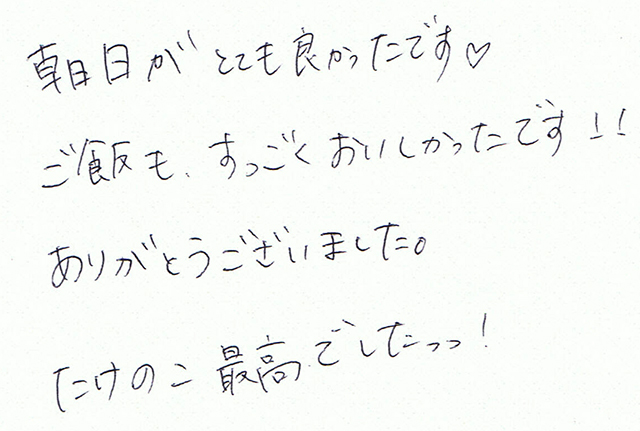 朝日がとても良かったです♡
ご飯も、すっごくおいしかったです!!
ありがとうございました。
たけのこ最高でしたっっ!